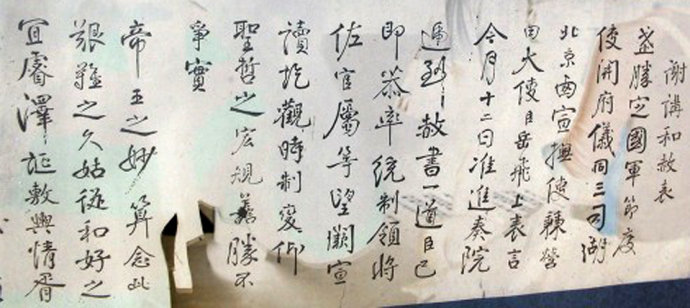 謝講和赦表
武勝定國軍節度
使開府儀同三司湖
北京西宣撫使兼營
田大使臣岳飛上表言
今月十二日准進奏院
遞到赦書一道臣已
即恭率統制領將
佐官屬等望闕宣
讀訖觀時制變仰
聖哲之宏規善勝不
爭實
帝王之妙算念此
艱難之久姑從和好之
宜睿澤誕敷輿情胥